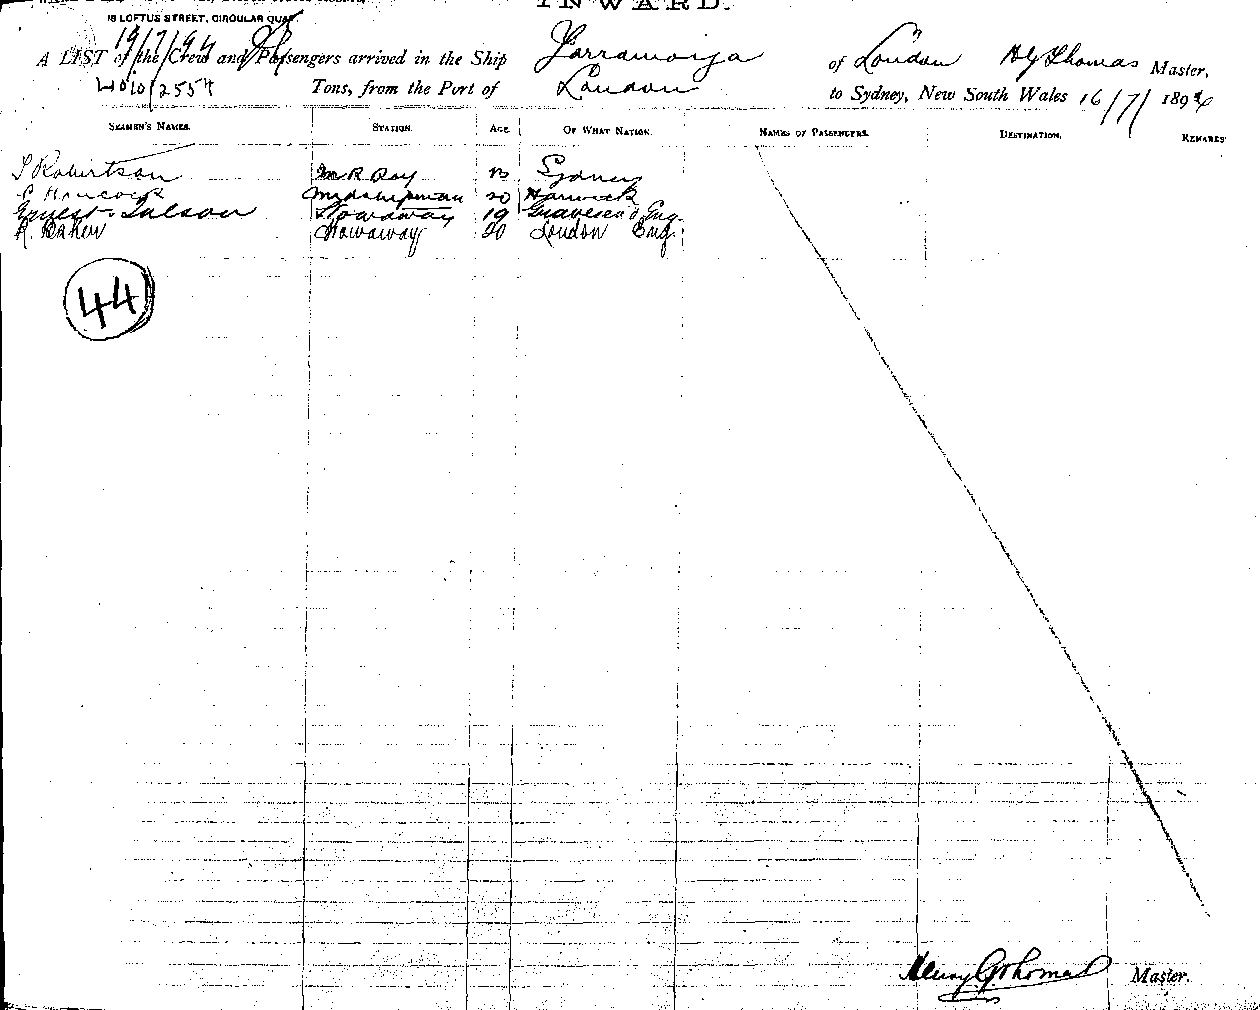 INWARD.
18 LOFTUS STREET, CIRCULAR QUAY.
19/7/94
A LIST of the Crew and Passengers arrived in the Ship Yarrawonga of London H G Thomas Master,
2554 Tons, from the Port of London to Sydney, New South Wales 16/7/1894
SEAMEN'S NAMES. STATION. AGE OF WHAT NATION. NAMES OF PASSENGERS. DESTINATION. REMARKS
Robertson Boy Sydney
Hancock Midshipman 20 Harwick
Ernest Stowaway 19 Gravesend Eng.
R. Baker Stowaway 20 London Eng.
44
Henry G Thomas Master.